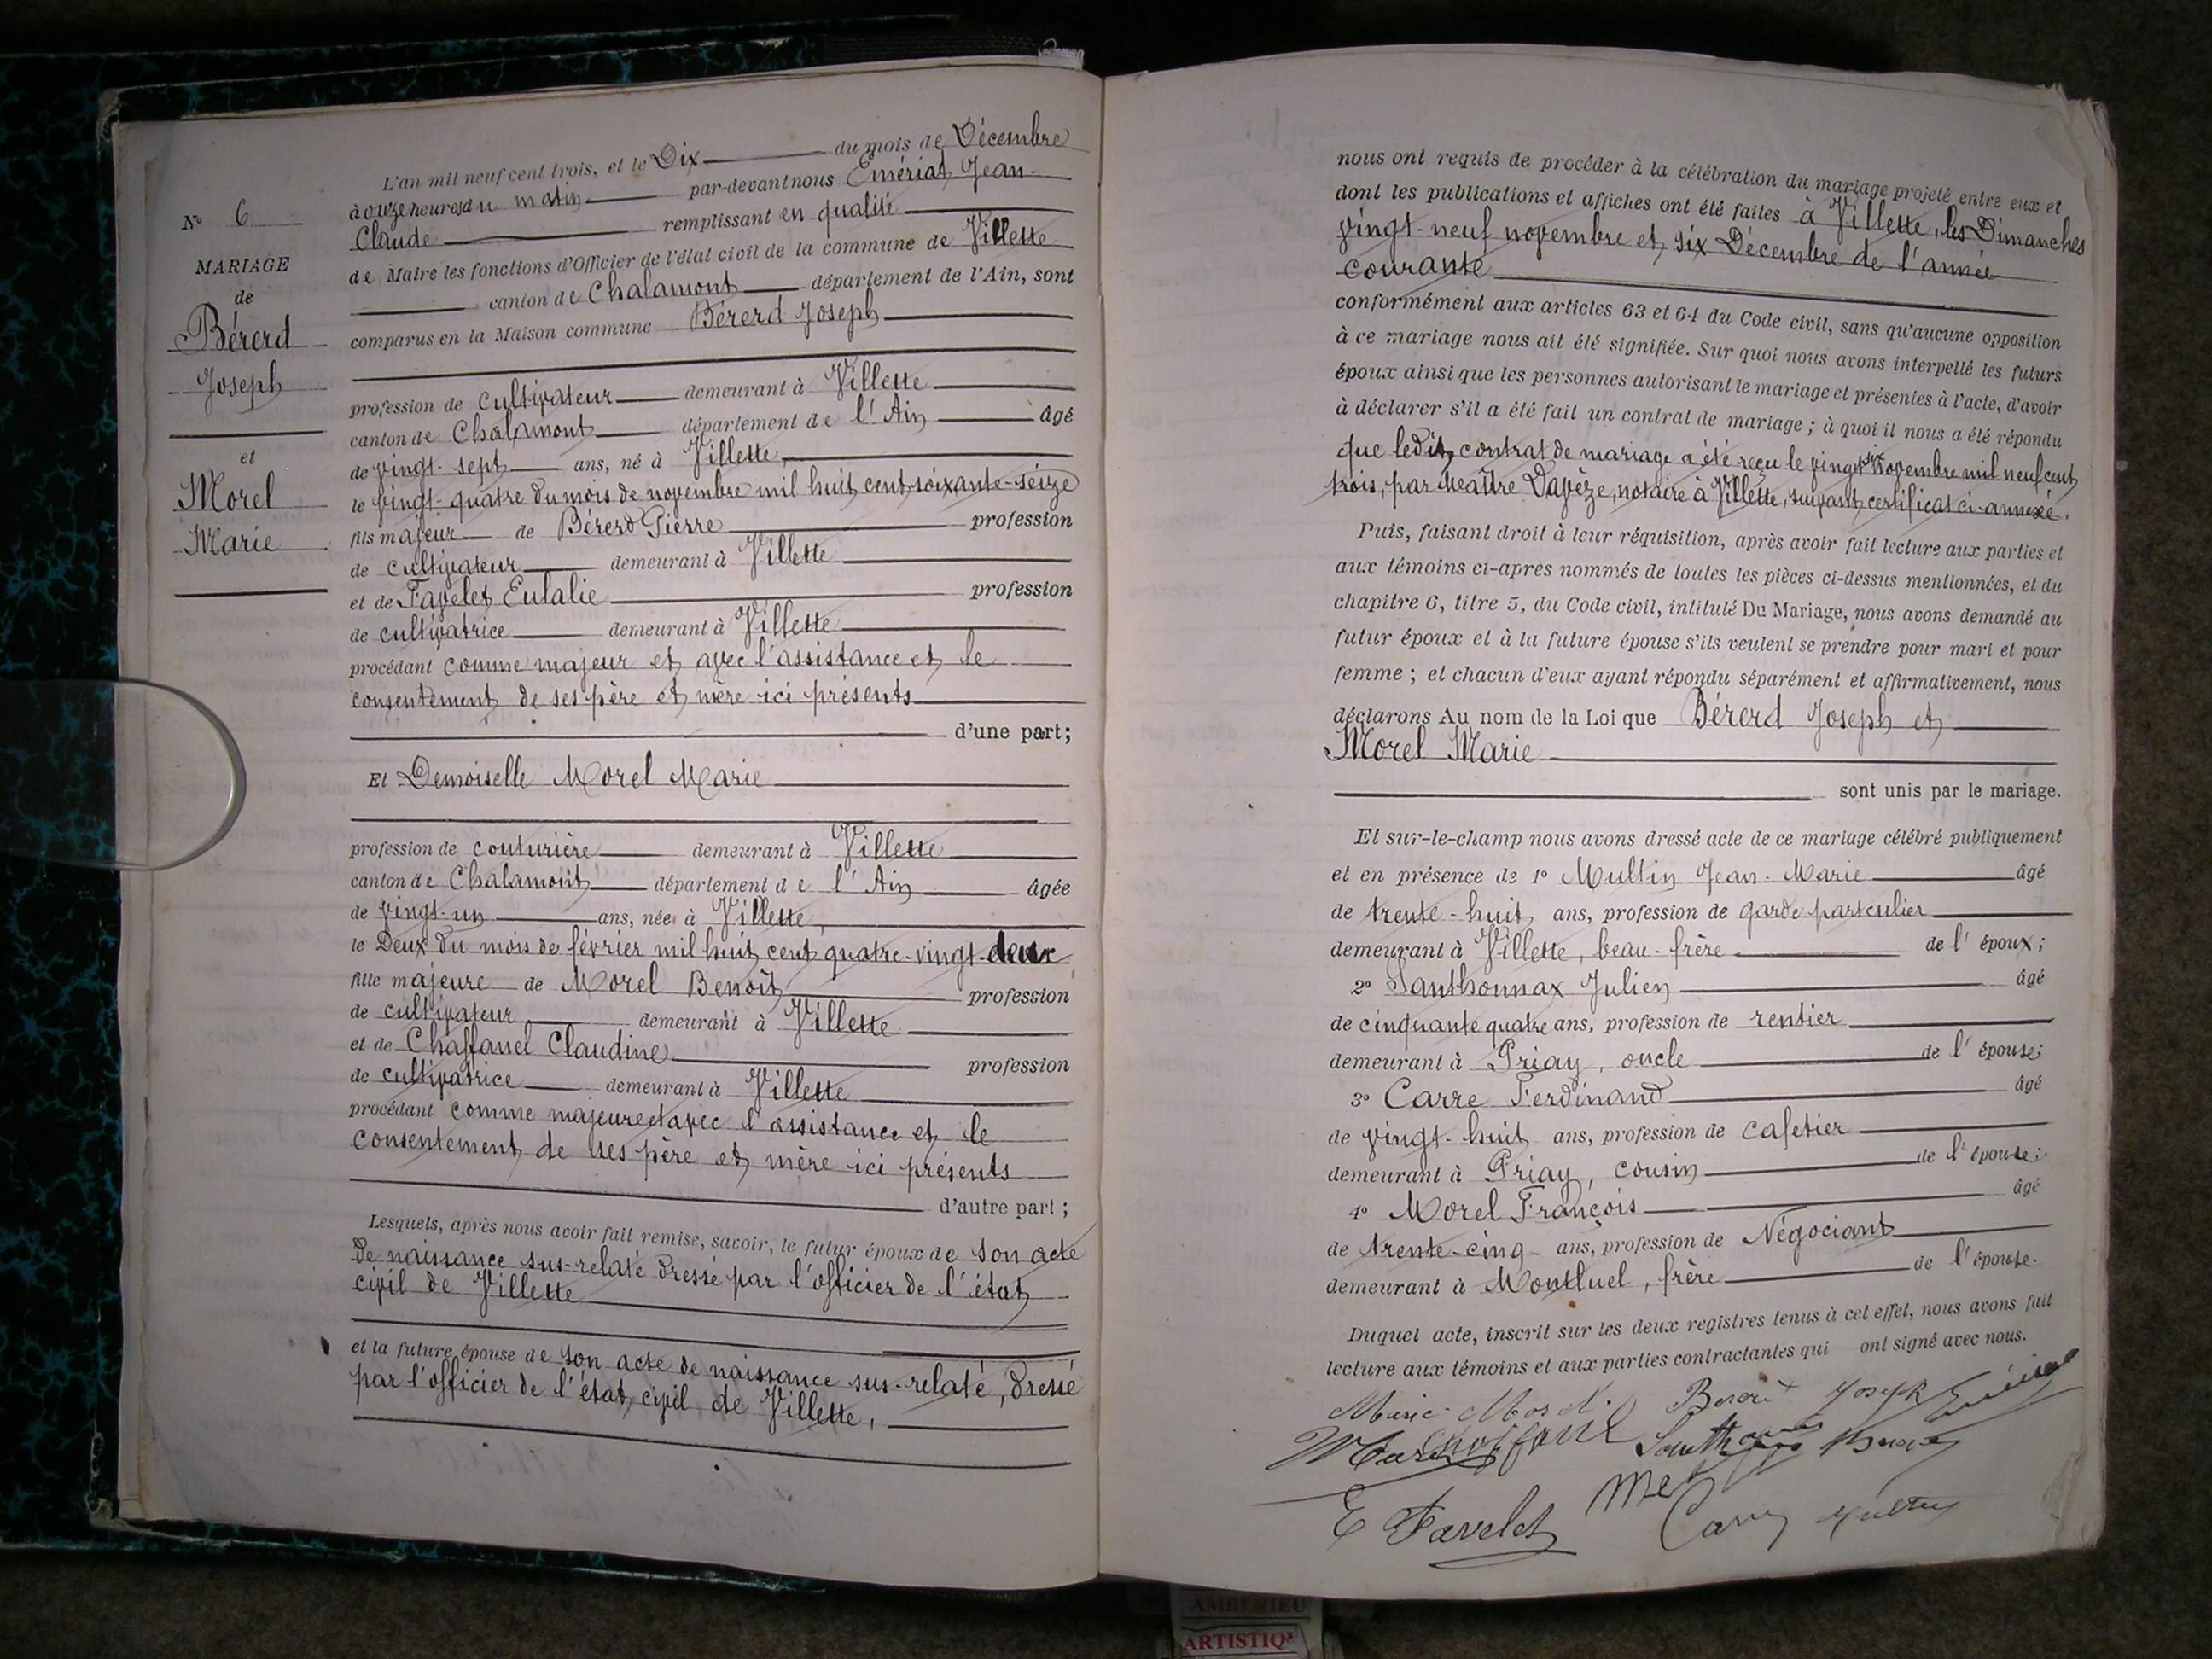 N° 6
MARIAGE
de
Bérerd
Joseph
et
Morel
Marie
L'an mil neuf cent trois, et le Dix du mois de Décembre
à onze heures du matin par-devant nous Emériat Jean-
Claude remplissant en qualité
de Maire les fonctions d'Officier de l'état civil de la commune de Villette
canton de Chalamont département de l'Ain, sont
comparus en la Maison commune Bérerd Joseph
profession de cultivateur demeurant à Villette
canton de Chalamont département de l'Ain âgé
de vingt-sept ans, né à Villette,
le vingt-quatre du mois de novembre mil huit cent soixante-seize
fils majeur de Bérerd Pierre profession
de cultivateur demeurant à Villette
et de Favelet Eulalie profession
de cultivatrice demeurant à Villette
procédant comme majeur et avec l'assistance et le
consentement de ses père et mère ici présents
d'une part;
Et Demoiselle Morel Marie
profession de couturière demeurant à Villette
canton de Chalamont département de l'Ain âgée
de vingt-un ans, née à Villette,
le Deux du mois de février mil huit cent quatre-vingt-deux
fille majeure de Morel Benoît profession
de cultivateur demeurant à Villette
et de Chaffanel Claudine profession
de cultivatrice demeurant à Villette
procédant comme majeure et avec l'assistance et le
consentement de ses père et mère ici présents
d'autre part;
Lesquels, après nous avoir fait remise, savoir, le futur époux de son acte
de naissance sus-relaté dressé par l'officier de l'état
civil de Villette
et la future épouse de son acte de naissance sus-relaté, dressé
par l'officier de l'état civil de Villette,
nous ont requis de procéder à la célébration du mariage projeté entre eux et
dont les publications et affiches ont été faites à Villette, les Dimanches
vingt-neuf novembre et six Décembre de l'année
courante
conformément aux articles 63 et 64 du Code civil, sans qu'aucune opposition
à ce mariage nous ait été signifiée. Sur quoi nous avons interpellé les futurs
époux ainsi que les personnes autorisant le mariage et présentes à l'acte, d'avoir
à déclarer s'il a été fait un contrat de mariage; à quoi il nous a été répondu
que ledit contrat de mariage a été reçu le vingt-six novembre mil neuf cent
trois, par Maître Davèze, notaire à Villette, suivant certificat ci-annexé.
Puis, faisant droit à leur réquisition, après avoir fait lecture aux parties et
aux témoins ci-après nommés de toutes les pièces ci-dessus mentionnées, et du
chapitre 6, titre 5, du Code civil, intitulé Du Mariage, nous avons demandé au
futur époux et à la future épouse s'ils veulent se prendre pour mari et pour
femme; et chacun d'eux ayant répondu séparément et affirmativement, nous
déclarons Au nom de la Loi que Bérerd Joseph et
Morel Marie
sont unis par le mariage.
Et sur-le-champ nous avons dressé acte de ce mariage célébré publiquement
et en présence de 1° Multin Jean-Marie âgé
de trente-huit ans, profession de garde particulier
demeurant à Villette, beau-frère de l'époux;
2° Santhonnax Julien âgé
de cinquante quatre ans, profession de rentier
demeurant à Priay, oncle de l'épouse;
3° Carre Ferdinand âgé
de vingt-huit ans, profession de cafetier
demeurant à Priay, cousin de l'épouse;
4° Morel François âgé
de trente-cinq ans, profession de Négociant
demeurant à Montluel, frère de l'épouse.
Duquel acte, inscrit sur les deux registres tenus à cet effet, nous avons fait
lecture aux témoins et aux parties contractantes qui ont signé avec nous.
Marie Morel. Bererd Joseph
E Favelet Carre Multin
AMBERIEU
ARTISTIQ